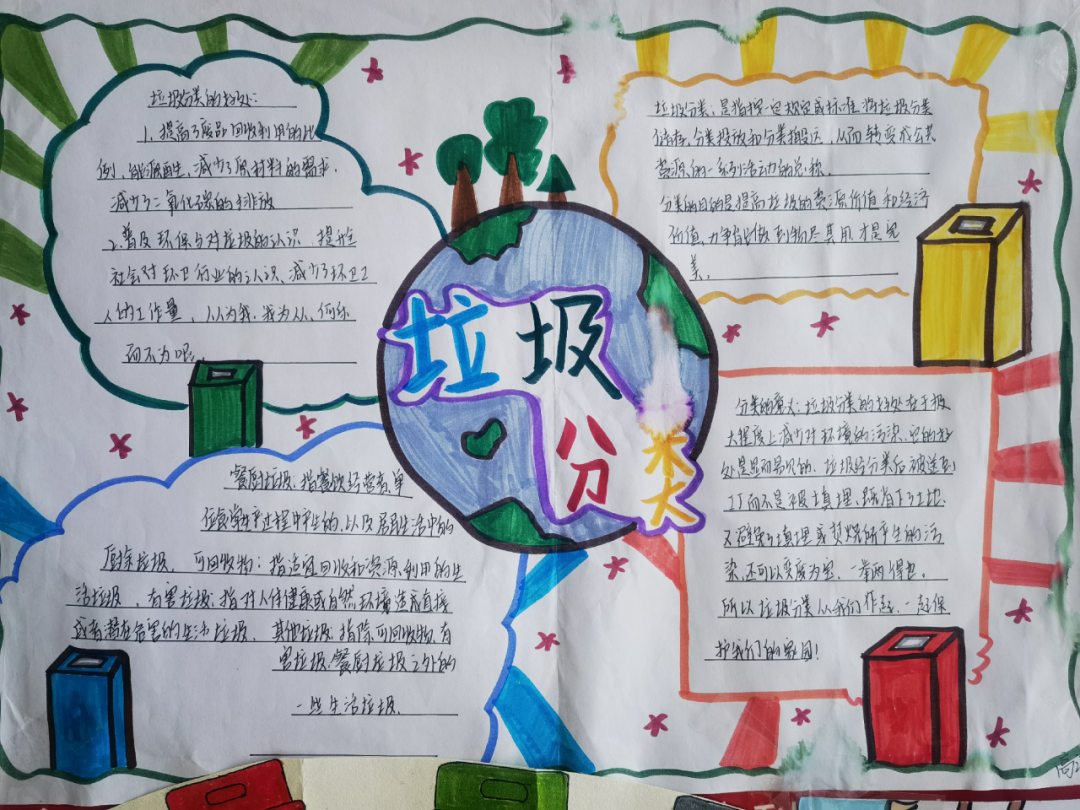 垃圾分类的好处：
1、提高了废品回收利用的比
例，能源再生，减少了原材料的需求，
减少了二氧化碳的排放
2、普及环保与对垃圾的认识，提升全
社会对环卫行业的认识、减少了环卫工
人的工作量，人人为我，我为人人，何乐
而不为呢。
垃圾
分类
垃圾分类，是指按一定规定或标准将垃圾分类
储存、分类投放和分类搬运，从而转变成公共
资源的一系列活动的总称。
分类的目的是提高垃圾的资源价值和经济
价值，力争做到物尽其用，才是完
美。
分类的意义：垃圾分类的好处在于极
大程度上减少对环境的污染，它的好
处是显而易见的，垃圾经分类后被送到
工厂而不是被填埋，既省下了土地，
又避免了填埋或焚烧所产生的污
染，还可以变废为宝，一举两得也。
所以垃圾分类从我们作起，一起保
护我们的家园！
餐厨垃圾，指餐饮经营者、单
位食堂等生产过程中产生的，以及居民生活中的
厨余垃圾。可回收物：指适宜回收和资源利用的生
活垃圾，有害垃圾：指对人体健康或自然环境造成直接
或者潜在危害的生活垃圾，其他垃圾：指除可回收物、有
害垃圾、餐厨垃圾之外的
一些生活垃圾。